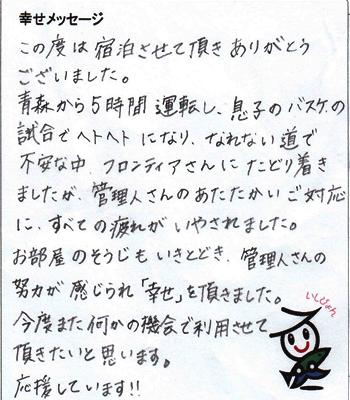 幸せメッセージ
この度は宿泊させて頂きありがとう
ございました。
青森から5時間運転し、息子のバスケの
試合でヘトヘトになり、なれない道で
不安な中、フロンティアさんにたどり着き
ましたが、管理人さんのあたたかいご対応
に、すべての疲れがいやされました。
お部屋のそうじもいきとどき、管理人さんの
努力が感じられ「幸せ」を頂きました。
今度また何かの機会で利用させて
頂きたいと思います。
応援しています!!